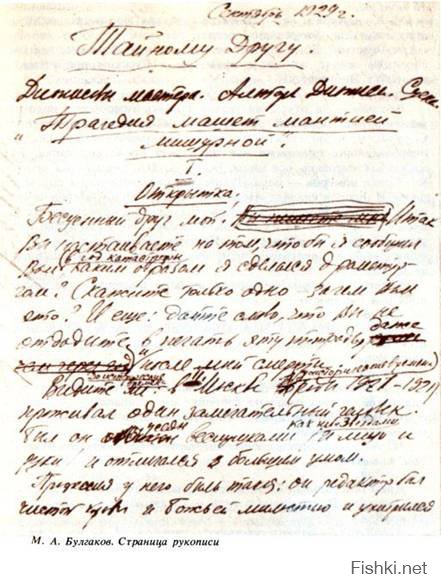 Сентябрь 1929 г.
Тайному Другу.
Дионисовы мастера. Алтарь Диониса. Сцены.
"Трагедия машет мантией
мишурной".
I.
Открытка.
Бесценный друг мой! Итак
Вы настаиваете на том, чтобы я сообщил
Вам в год катастрофы каким образом я сделался драматур-
гом? Скажите только одно – зачем вам
это? И еще: дайте слово, что Вы не
отдадите в печать эту тетрадь даже
и после моей смерти.
Видите ли: в Москве
проживал один замечательный человек.
Был он усеян веснушками как небо звездами (и лицо и
руки) и отличался большим умом.
Профессия у него была такая: он редактор был
чистой крови и божьей милостью и ухитрился
М. А. Булгаков. Страница рукописи
Fishki.net